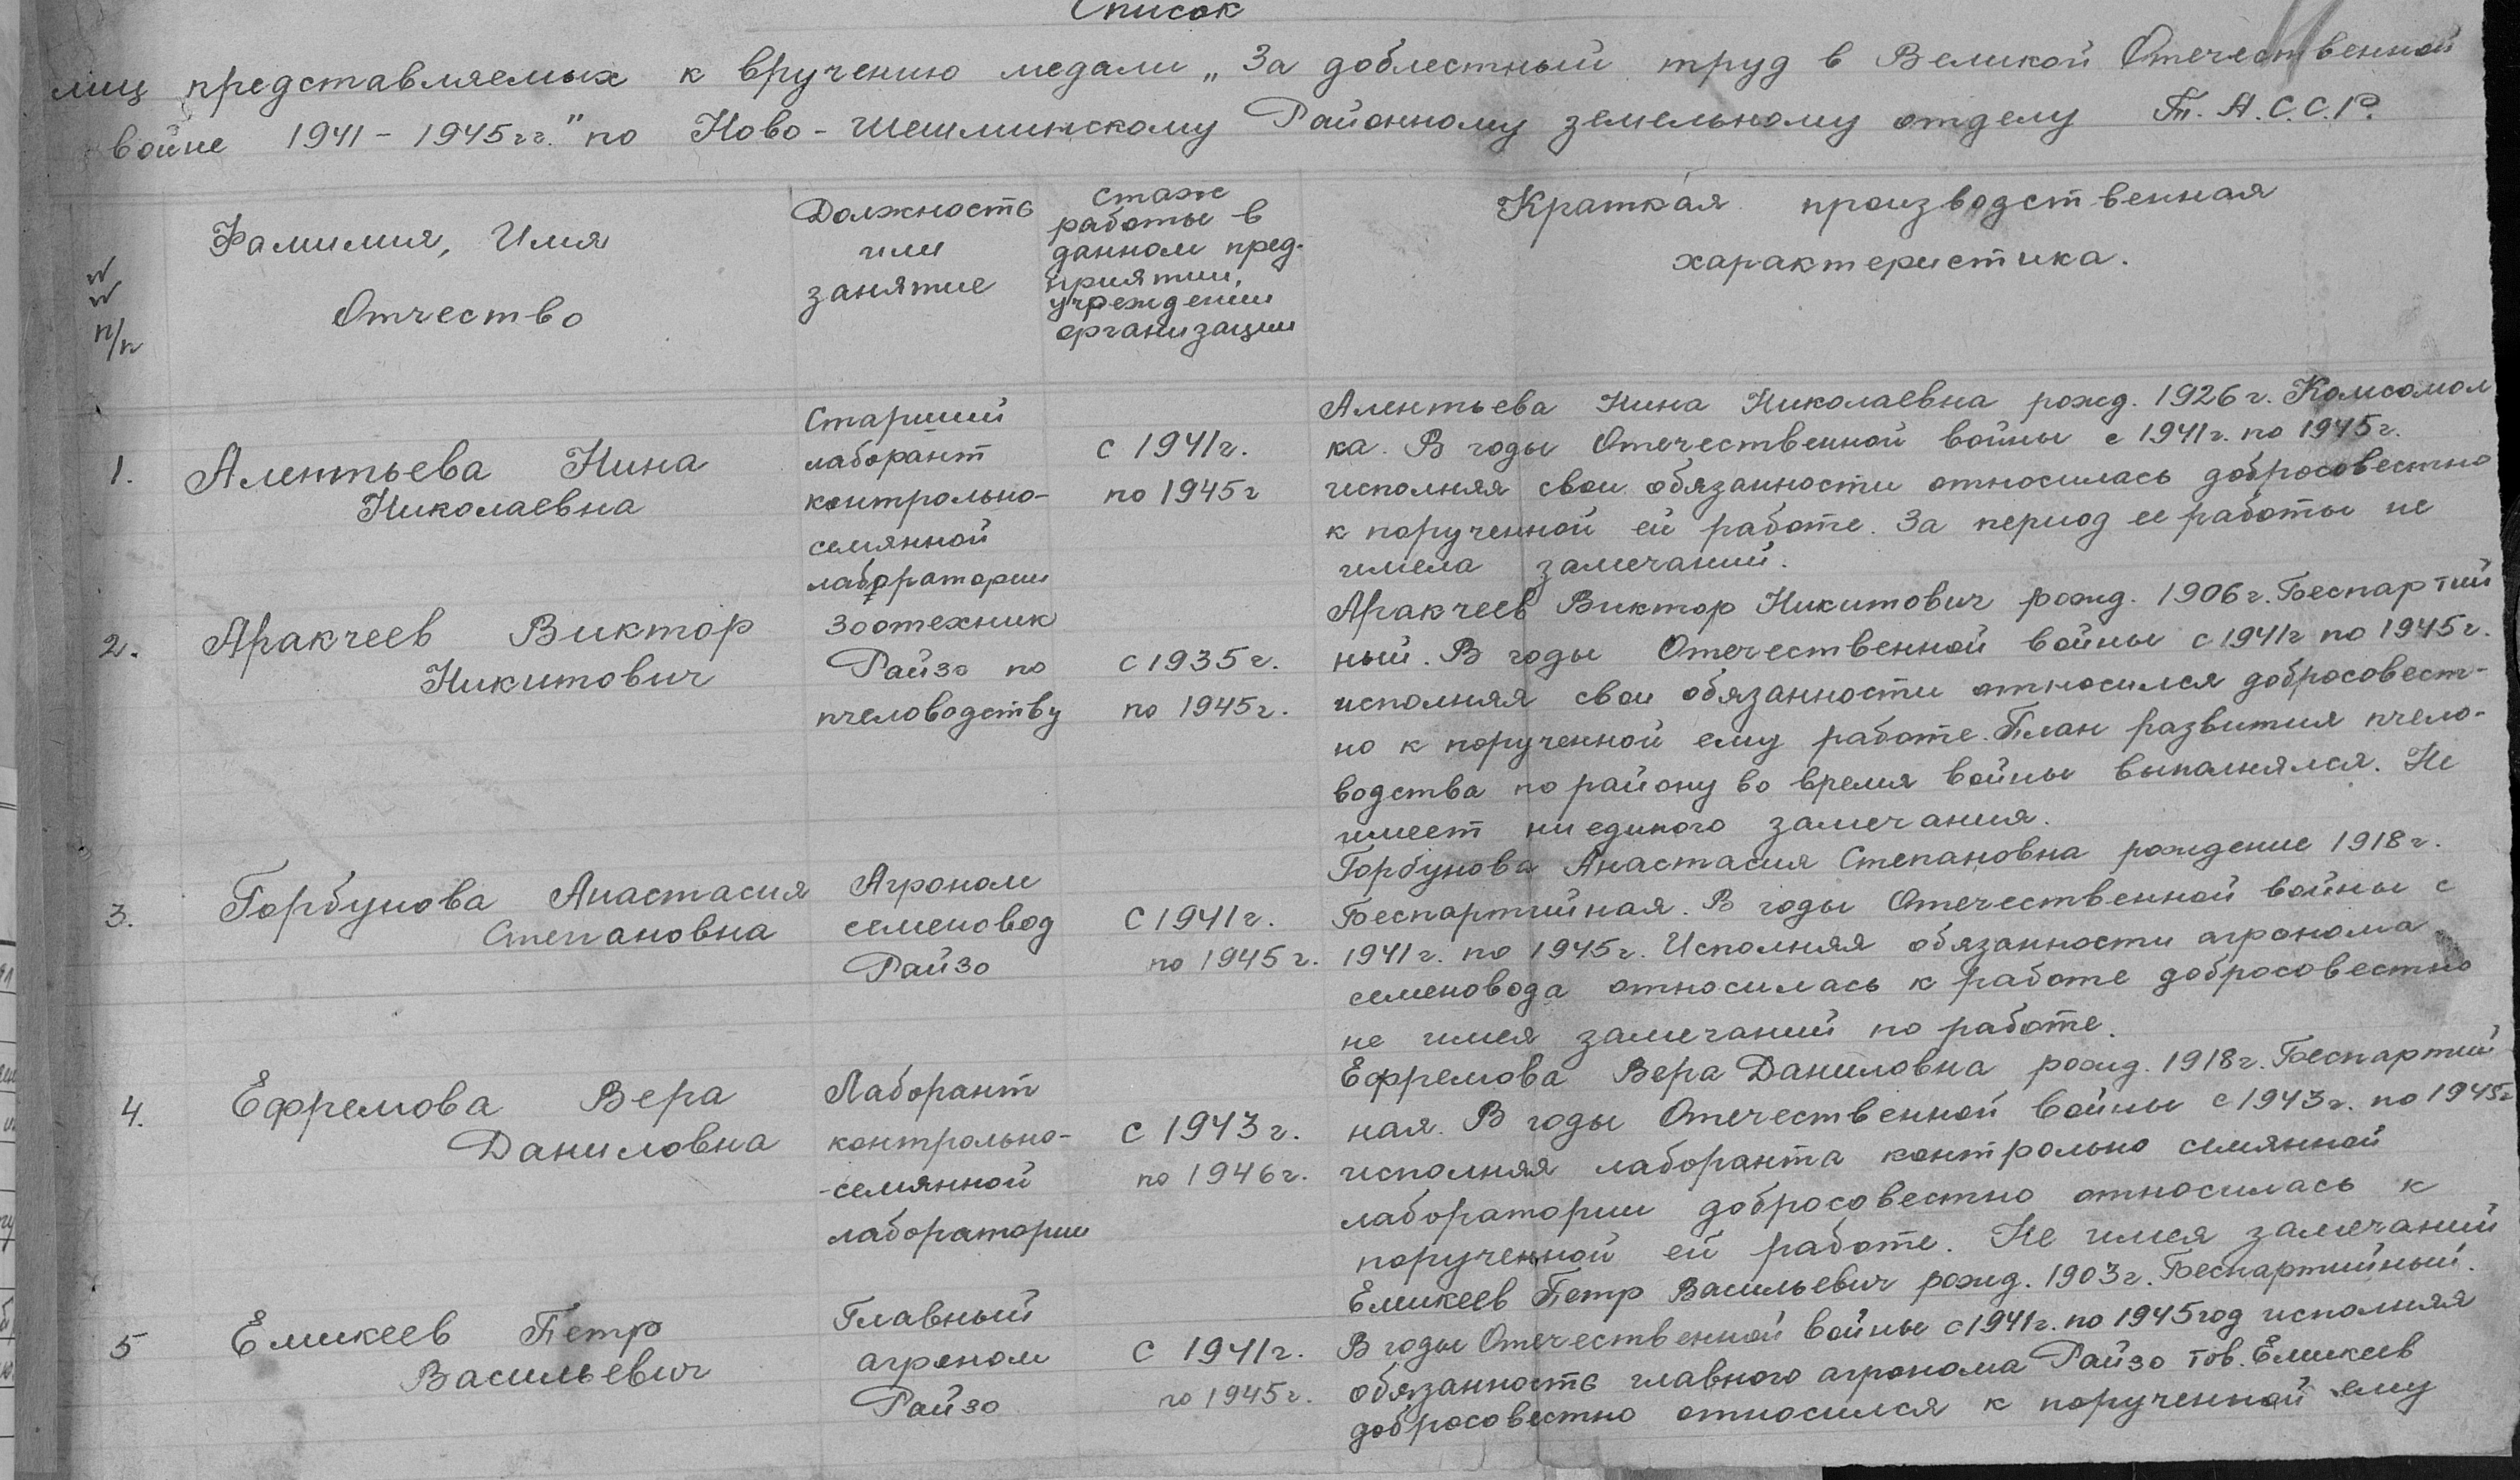 Список
лиц представляемых к вручению медали „За доблестный труд в Великой Отечественной
войне 1941 - 1945 гг." по Ново-Шешминскому Районному земельному отделу Т.А.С.С.Р.
№ № п/п
Фамилия, Имя
Отчество
Должность
или
занятие
Стаж
работы в
данном пред-
приятии,
учреждении
организации
Краткая производственная
характеристика.
1.
Алентьева Нина
Николаевна
Старший
лаборант
контрольно-
семянной
лаборатории
с 1941г.
по 1945г
Алентьева Нина Николаевна рожд. 1926г. Комсомол
ка. В годы Отечественной войны с 1941г. по 1945г.
исполняя свои обязанности относилась добросовестно
к порученной ей работе. За период ее работы не
имела замечаний.
2.
Аракчеев Виктор
Никитович
Зоотехник
Райзо по
пчеловодству
с 1935г.
по 1945г.
Аракчеев Виктор Никитович рожд. 1906г. Беспартий
ный. В годы Отечественной войны с 1941г по 1945г.
исполняя свои обязанности относился добросовест-
но к порученной ему работе. План развития пчело-
водства по району во время войны выполнялся. Не
имеет ни единого замечания.
3.
Горбунова Анастасия
Степановна
Агроном
семеновод
Райзо
С 1941г.
по 1945г.
Горбунова Анастасия Степановна рождение 1918г.
Беспартийная. В годы Отечественной войны с
1941г. по 1945г. Исполняя обязанности агронома
семеновода относилась к работе добросовестно
не имея замечаний по работе.
4.
Ефремова Вера
Даниловна
Лаборант
контрольно-
-семянной
лаборатории
с 1943г.
по 1946г.
Ефремова Вера Даниловна рожд. 1918г. Беспартий
ная. В годы Отечественной войны с 1943г. по 1945г
исполняя лаборанта контрольно семянной
лаборатории добросовестно относилась к
порученной ей работе. Не имея замечаний
5
Емикеев Петр
Васильевич
Главный
агроном
Райзо
с 1941г.
по 1945г.
Емикеев Петр Васильевич рожд. 1903г. Беспартийный.
В годы Отечественной войны с 1941г. по 1945 год исполняя
обязанность главного агронома Райзо тов. Емикеев
добросовестно относился к порученной ему